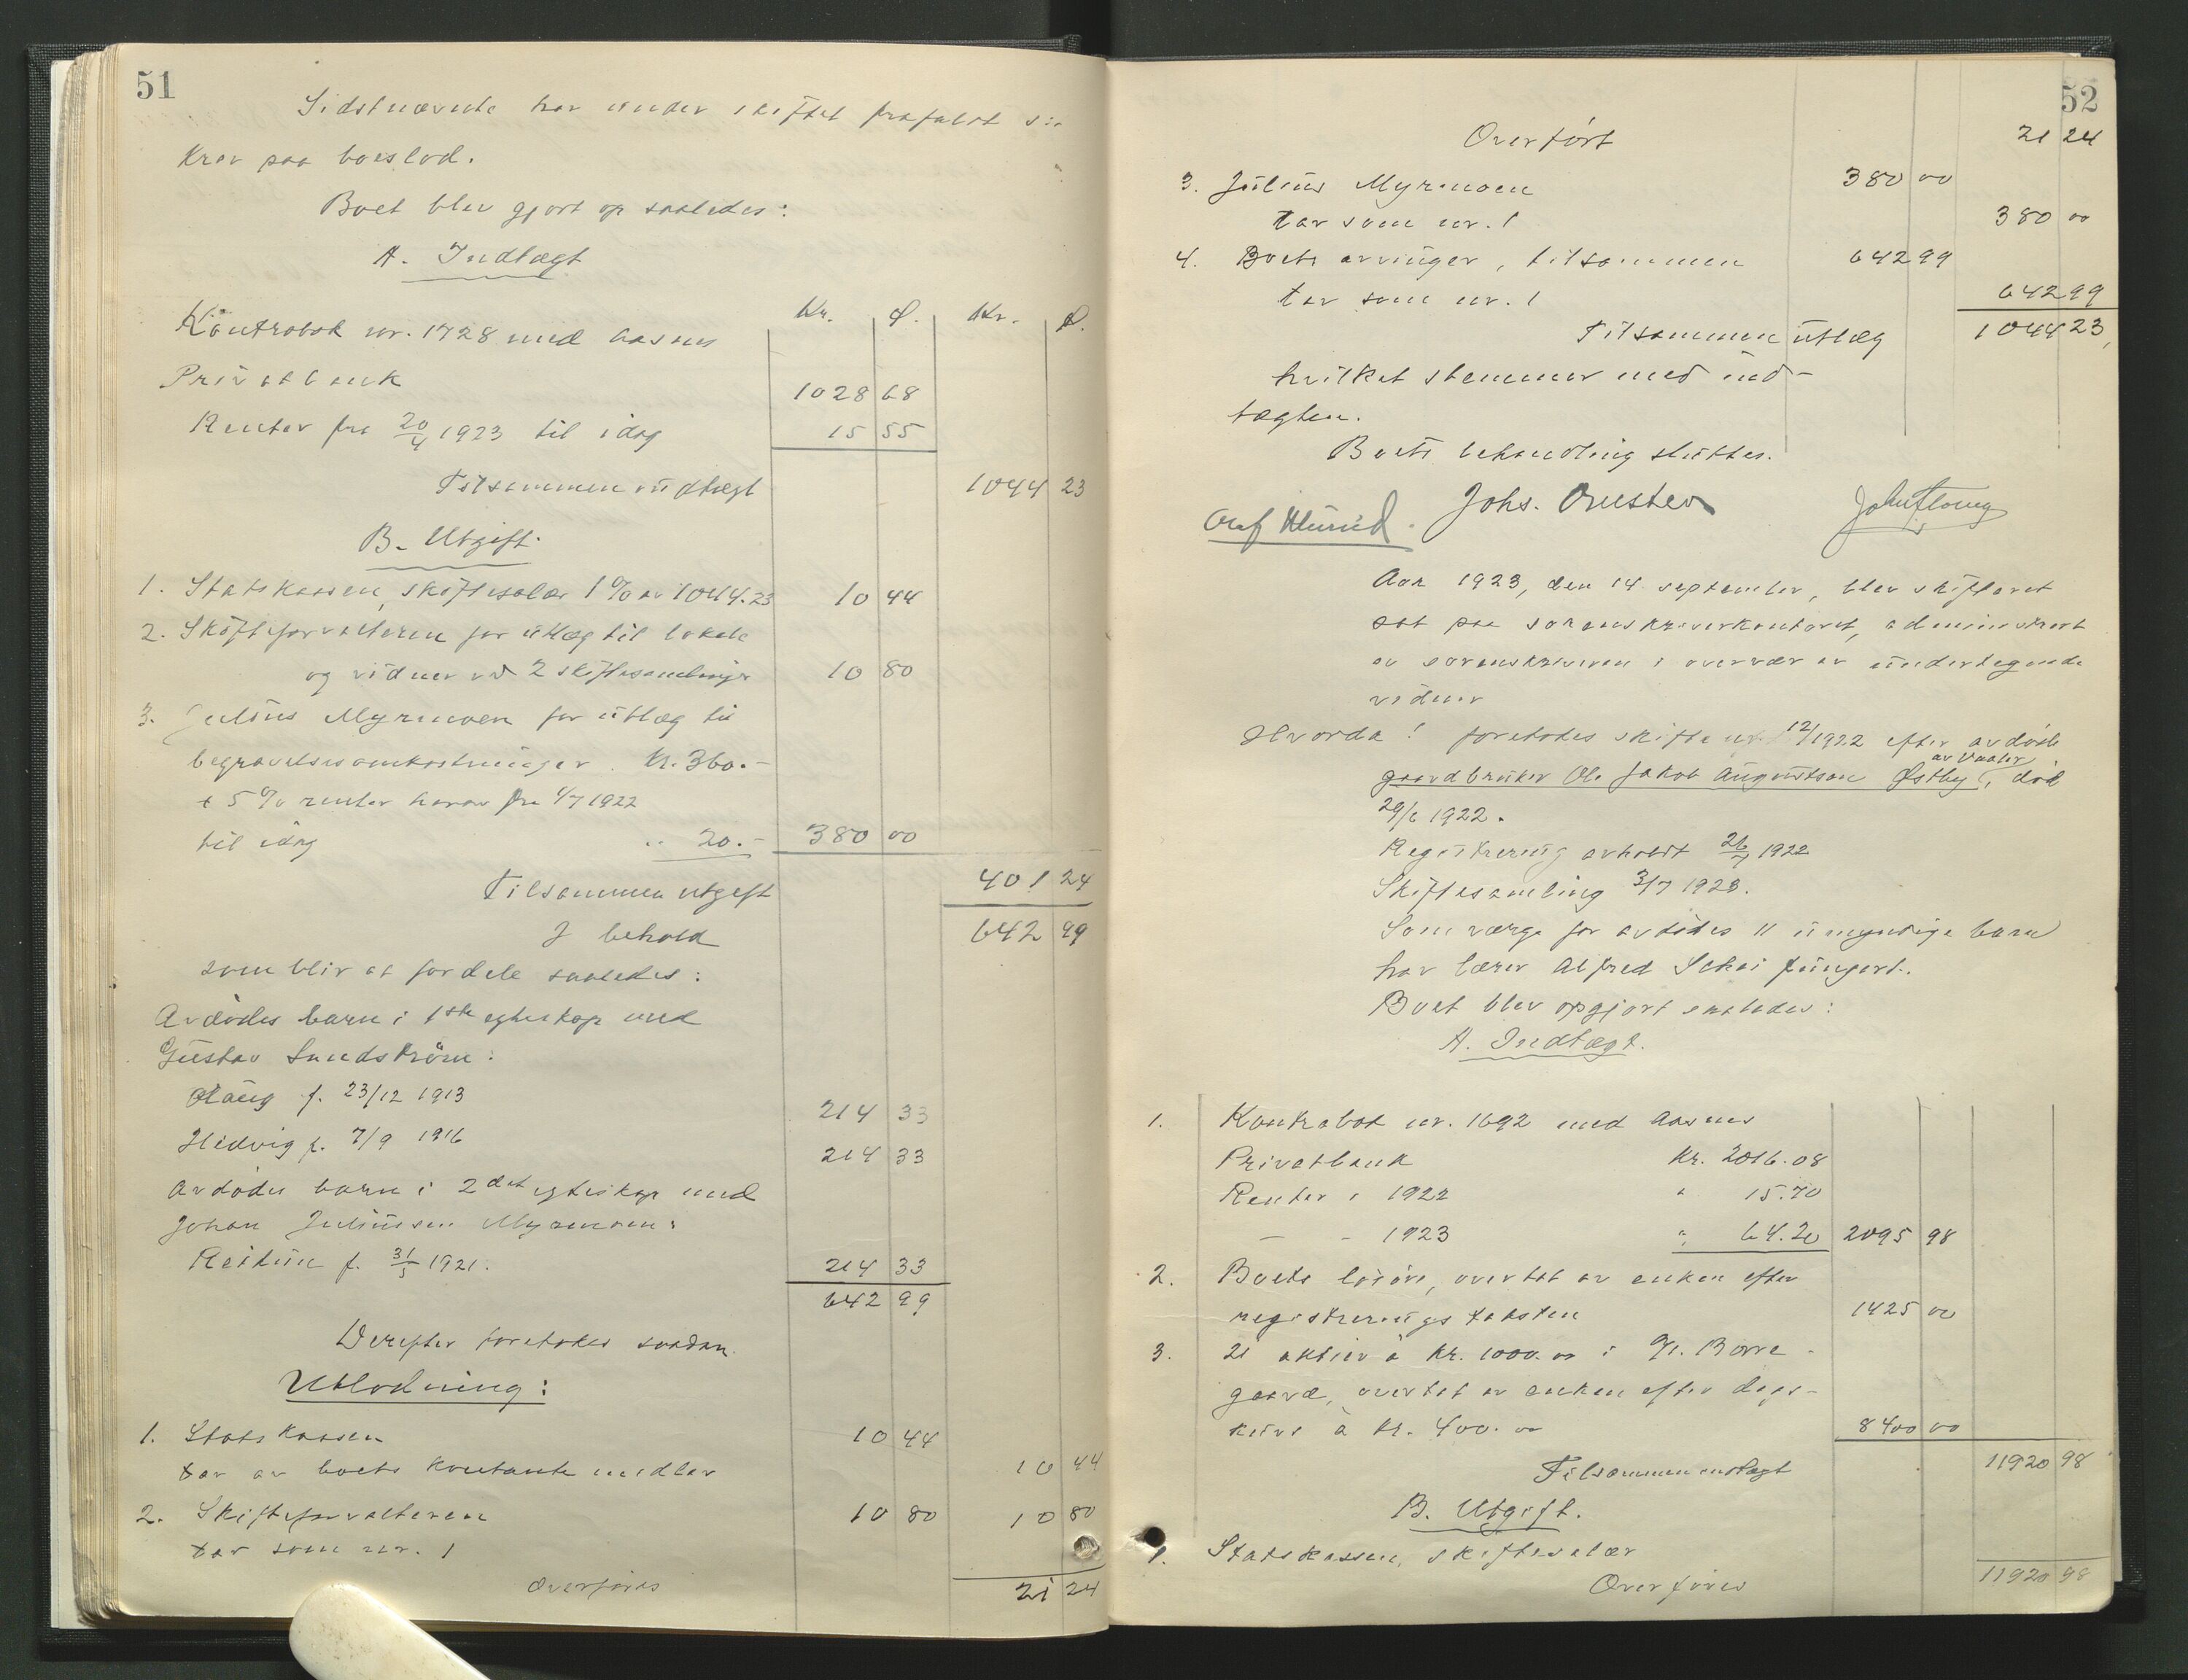 51
Sidstnævnte har under skiftet frafaldt sit
Krav paa boeslod.
Boet blev gjort op saaledes:
A. Indtægt
Kr. Ø. Kr. Ø.
Kontrabok nr. 1728 med Aasnes
Privatbank 1028 68
Renter fra 20/4 1923 til idag 15 55
Tilsammen indtægt 1044 23
B. Utgift.
1. Statskassen, skiftesalær 1 % av 1044.23 10 44
2. Skifteforvalteren for utlæg til lokale
og vidner ved 2 skiftesamlinger 10 80
3. Julius Myrmoen for utlæg til
begravelsesomkostninger. Kr. 360.-
+ 5 % renter herav fra 4/7 1922
til idag " 20.- 380 00
Tilsammen utgift 401 24
I behold 642 99
som blir at fordele saaledes:
Avdødes barn i 1ste egteskap med
Gustav Sundström:
f. 23/12 1913 214 33
Hedvig f. 7/9 1916 214 33
Avdødes barn i 2det egteskap med
Johan Juliussen Myrmoen:
f. 31/5 1921. 214 33
642 99
Derefter foretokes saadan
Utlodning:
1. Statskassen 10 44
tar av boets kontante midler 10 44
2. Skifteforvalteren 10 80 10 80
tar som nr. 1
Overføres 21 24
52
Overført 21 24
3. Julius Myrmoen 380 00
tar som nr. 1 380 00
4. Boets arvinger, tilsammen 642 99
tar som nr. 1 642 99
Tilsammen utlæg 1044 23,
hvilket stemmer med ind-
tægten.
Boets behandling sluttes.
Johs.
Aar 1923, den 14 september, blev skifteret
sat paa sorenskriverkontoret, administrert
av sorenskriveren i overvær av undertegnede
vidner
Hvorda! foretokes skifte nr. 12/1922 efter avdøde
gaardbruker Ole Jakob Augustson Østby av Vaaler, død
29/6 1922.
Registrering avholdt 26/7 1922
Skiftesamling 3/7 1923.
Som værge for avdødes 11 umyndige barn
har lærer Alfred fungert.
Boet blev opgjort saaledes:
A. Indtægt.
1. Kontrabok nr. 1692 med Aasnes
Privatbank Kr. 2016.08
Renter i 1922 " 15.70
- - 1923 " 64.20 2095 98
2. Boets løsøre, overtat av enken efter
registreringstaksten 1425 00
3. 21 aktier à kr. 1000.00 i A/S. Borre-
gaard, overtat av enken efter dags-
kurs à kr. 400.00 8400 00
Tilsammen indtægt 11920 98
B. Utgift.
1. Statskassen, skiftesalær
Overføres 11920 98